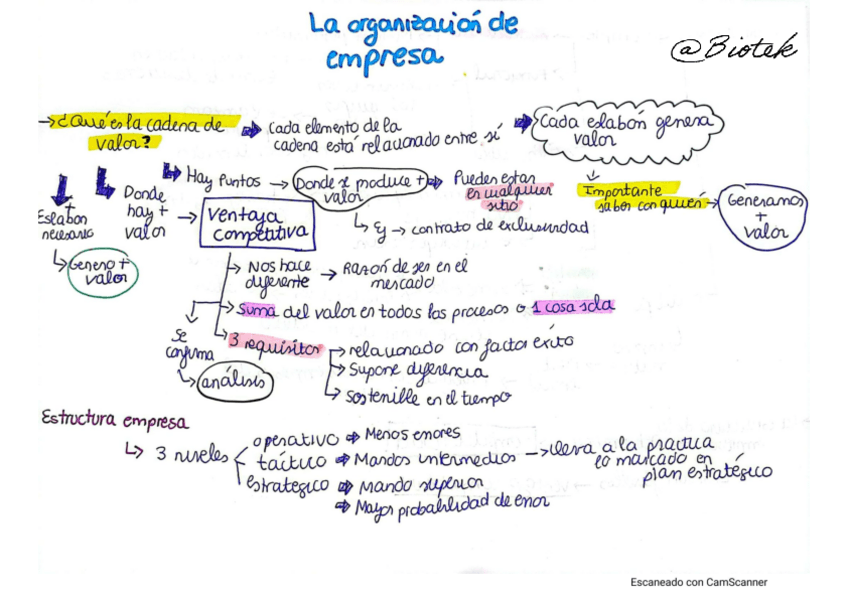 La organización de
empresa
@Biotek
→ ¿Qué es la cadena de
valor?
⇒ Cada elemento de la
cadena está relacionado entre sí
⇒ Cada eslabón genera
valor
↓
Importante
saber con quién →
Generamos
+
valor
↳ Hay puntos → Donde se produce +
valor
⇒ Pueden estar
en cualquier
sitio
↳ Ej → contrato de exclusividad
+
Eslabon
necesario
↳ Genero +
valor
Donde
hay +
valor
→ Ventaja
competitiva
→ Nos hace
diferente
→ Razón de ser en el
mercado
→ Suma del valor en todos los procesos o 1 cosa sola
↳ 3 requisitos
→ relacionado con factor éxito
→ Supone diferencia
↳ Sostenible en el tiempo
Se
confirma
↳ análisis
Estructura empresa
↳ 3 niveles
operativo ⇒ Menos errores
táctico ⇒ Mandos intermedios → lleva a la practica
lo marcado en
plan estratégico
estratégico ⇒ Mando superior
⇒ Mayor probabilidad de error
Escaneado con CamScanner